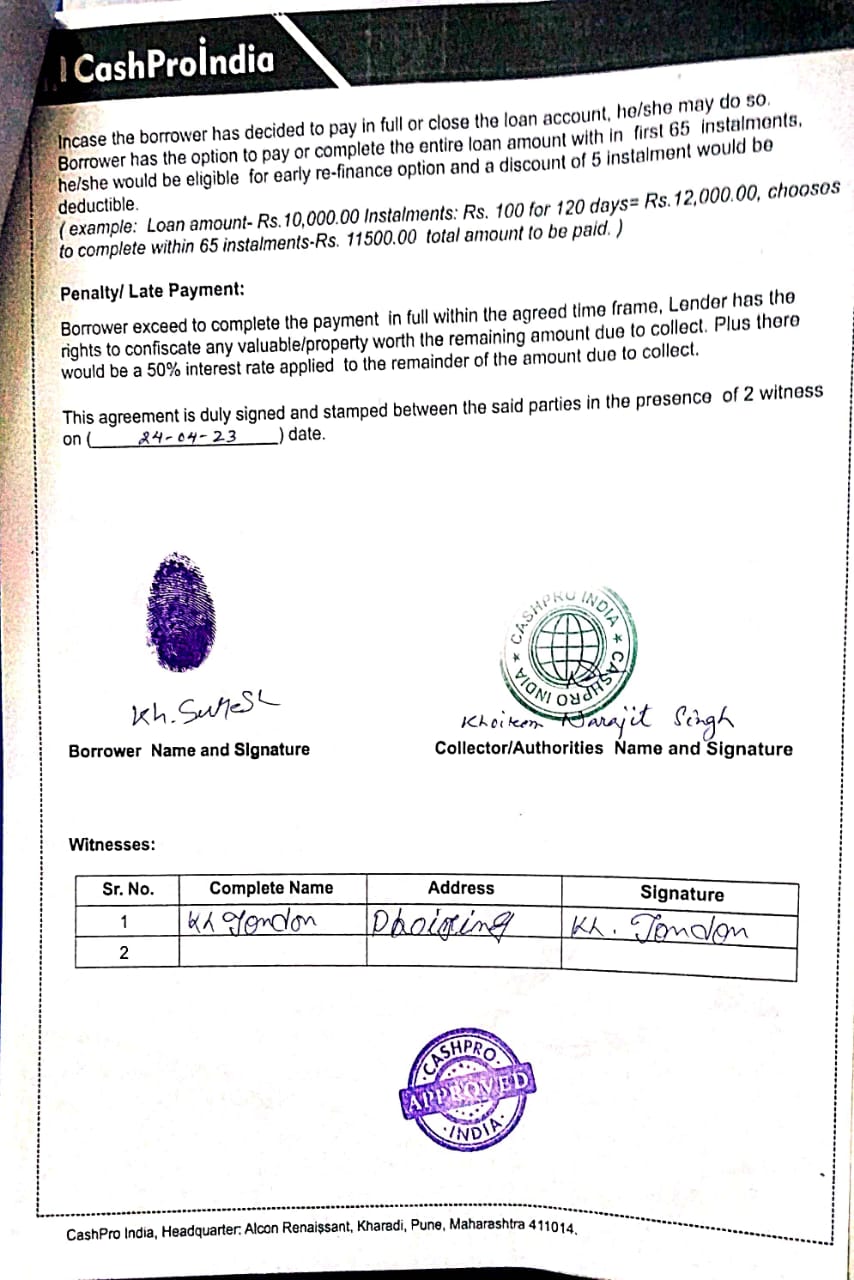 CashProIndia
Incase the borrower has decided to pay in full or close the loan account, he/she may do so.
Borrower has the option to pay or complete the entire loan amount with in first 65 instalments,
he/she would be eligible for early re-finance option and a discount of 5 instalment would be
deductible.
(example: Loan amount- Rs.10,000.00 Instalments: Rs. 100 for 120 days= Rs.12,000.00, chooses
to complete within 65 instalments-Rs. 11500.00 total amount to be paid. )
Penalty/ Late Payment:
Borrower exceed to complete the payment in full within the agreed time frame, Lender has the
rights to confiscate any valuable/property worth the remaining amount due to collect. Plus there
would be a 50% interest rate applied to the remainder of the amount due to collect.
This agreement is duly signed and stamped between the said parties in the presence of 2 witness
on ( 24-04-23 ) date.
CASHPRO INDIA ★ CASHPRO INDIA ★
Kh. Suresh
Khoirom Narajit Singh
Borrower Name and Signature
Collector/Authorities Name and Signature
Witnesses:
Sr. No. Complete Name Address Signature
1 Kh Tondon Kh. Tondon
2
CASHPRO
APPROVED
INDIA
CashPro India, Headquarter: Alcon Renaissant, Kharadi, Pune, Maharashtra 411014.